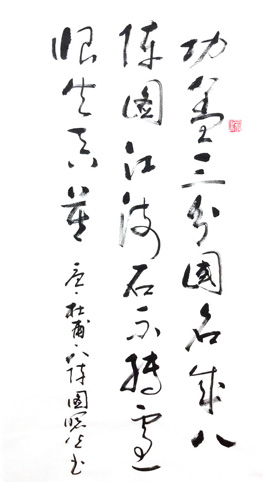 功蓋三分國名成八
陣圖江流石不轉遺
恨失吞吳 唐杜甫八陣圖 书